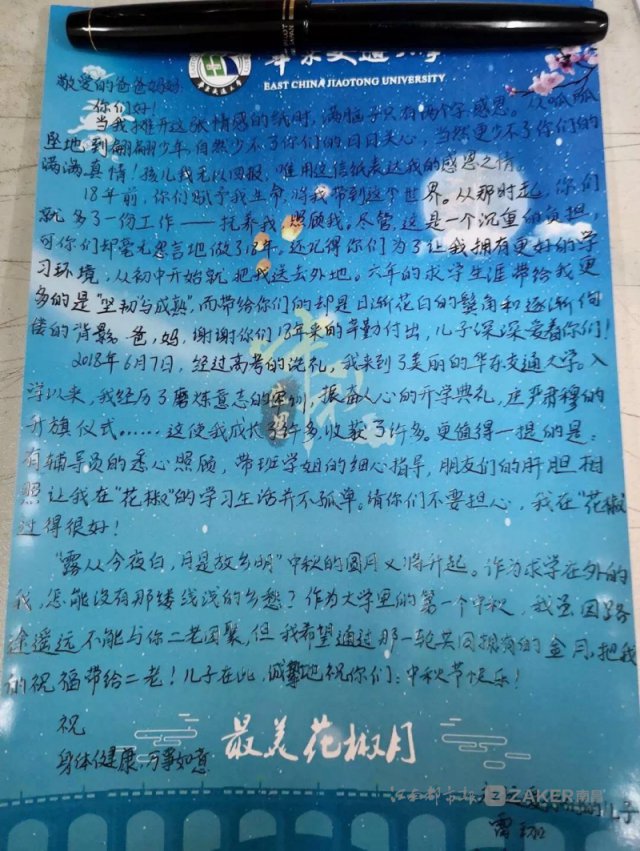 华东交通大学
EAST CHINA JIAOTONG UNIVERSITY
敬爱的爸爸妈妈:
你们好!
当我摊开这张情感的纸时,满脑子只有两个字,感恩。从呱呱
坠地,到翩翩少年,自然少不了你们的日日关心,当然更少不了你们的
满满真情!孩儿我无以回报,唯用这信纸表达我的感恩之情。
18年前,你们赋予我生命,将我带到这个世界。从那时起,你们
就多了一份工作——抚养我,照顾我。尽管,这是一个沉重的负担,
可你们却毫无怨言地做了18年。还记得你们为了让我拥有更好的学
习环境,从初中开始就把我送去外地。六年的求学生涯带给我更
多的是"坚韧与成熟",而带给你们的却是日渐花白的鬓角和逐渐佝
偻的背影。爸,妈,谢谢你们18年来的辛勤付出,儿子深深爱着你们!
2018年6月7日,经过高考的洗礼,我来到了美丽的华东交通大学。入
学以来,我经历了磨炼意志的军训,振奋人心的开学典礼,庄严肃穆的
升旗仪式……这使我成长了许多,收获了许多。更值得一提的是:
有辅导员的悉心照顾,带班学姐的细心指导,朋友们的肝胆相
照让我在"花椒"的学习生活并不孤单。请你们不要担心,我在"花椒"
过得很好!
"露从今夜白,月是故乡明"中秋的圆月又将升起。作为求学在外的
我,怎能没有那缕浅浅的乡愁?作为大学里的第一个中秋,我虽因路
途遥远不能与你二老团聚,但我希望通过那一轮共同拥有的金月,把我
的祝福带给二老!儿子在此,诚挚地祝你们:中秋节快乐!
祝
身体健康,万事如意
最美花椒月
江南都市报 ZAKER南昌
的儿子
雷